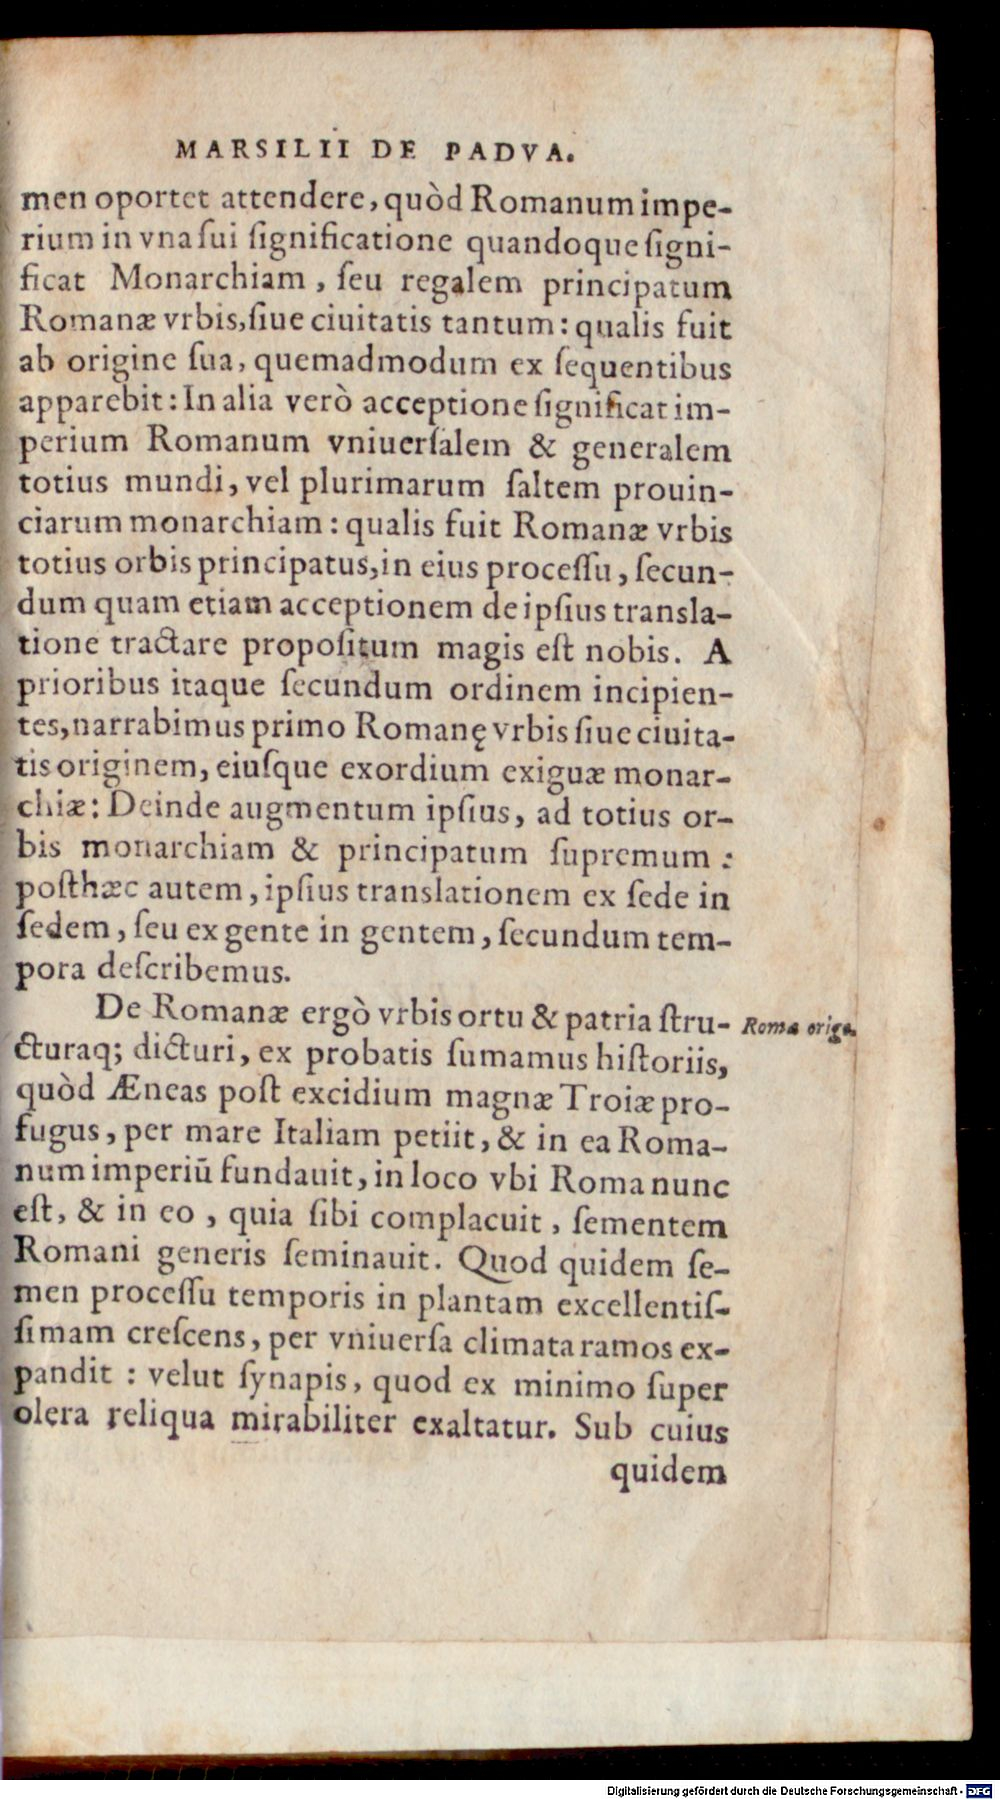 MARSILII DE PADVA.
men oportet attendere, quòd Romanum impe-
rium in vna sui significatione quandoque signi-
ficat Monarchiam, seu regalem principatum
Romanæ vrbis, siue ciuitatis tantum: qualis fuit
ab origine sua, quemadmodum ex sequentibus
apparebit: In alia verò acceptione significat im-
perium Romanum vniuersalem & generalem
totius mundi, vel plurimarum saltem prouin-
ciarum monarchiam: qualis fuit Romanæ vrbis
totius orbis principatus, in eius processu, secun-
dum quam etiam acceptionem de ipsius transla-
tione tractare propositum magis est nobis. A
prioribus itaque secundum ordinem incipien-
tes, narrabimus primo Romanę vrbis siue ciuita-
tis originem, eiusque exordium exiguæ monar-
chiæ: Deinde augmentum ipsius, ad totius or-
bis monarchiam & principatum supremum:
posthæc autem, ipsius translationem ex sede in
sedem, seu ex gente in gentem, secundum tem-
pora describemus.
De Romanæ ergò vrbis ortu & patria stru-
Romæ origo.
cturaq; dicturi, ex probatis sumamus historiis,
quòd Æneas post excidium magnæ Troiæ pro-
fugus, per mare Italiam petiit, & in ea Roma-
num imperiū fundauit, in loco vbi Roma nunc
est, & in eo, quia sibi complacuit, sementem
Romani generis seminauit. Quod quidem se-
men processu temporis in plantam excellentis-
simam crescens, per vniuersa climata ramos ex-
pandit: velut synapis, quod ex minimo super
olera reliqua mirabiliter exaltatur. Sub cuius
quidem
Digitalisierung gefördert durch die Deutsche Forschungsgemeinschaft - DFG